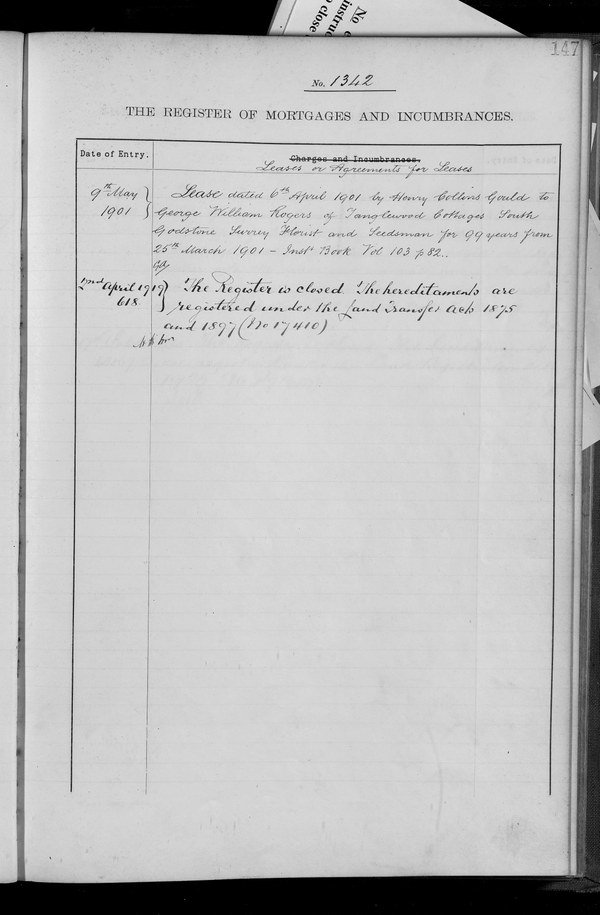 No
instruc
close
147
No. 1342
THE REGISTER OF MORTGAGES AND INCUMBRANCES.
Date of Entry.
Charges and Incumbrances.
Leases or Agreements for Leases
9th May
1901
Lease dated 6th April 1901 by Henry Collins Gould to
George William Rogers of Tanglewood Cottages South
Godstone Surrey Florist and Seedsman for 99 years from
25th March 1901 – Inst Book Vol 103 p 82.
2nd April 1919
618.
The Register is closed. The hereditaments are
registered under the Land Transfer Acts 1875
and 1897 (No 17410)